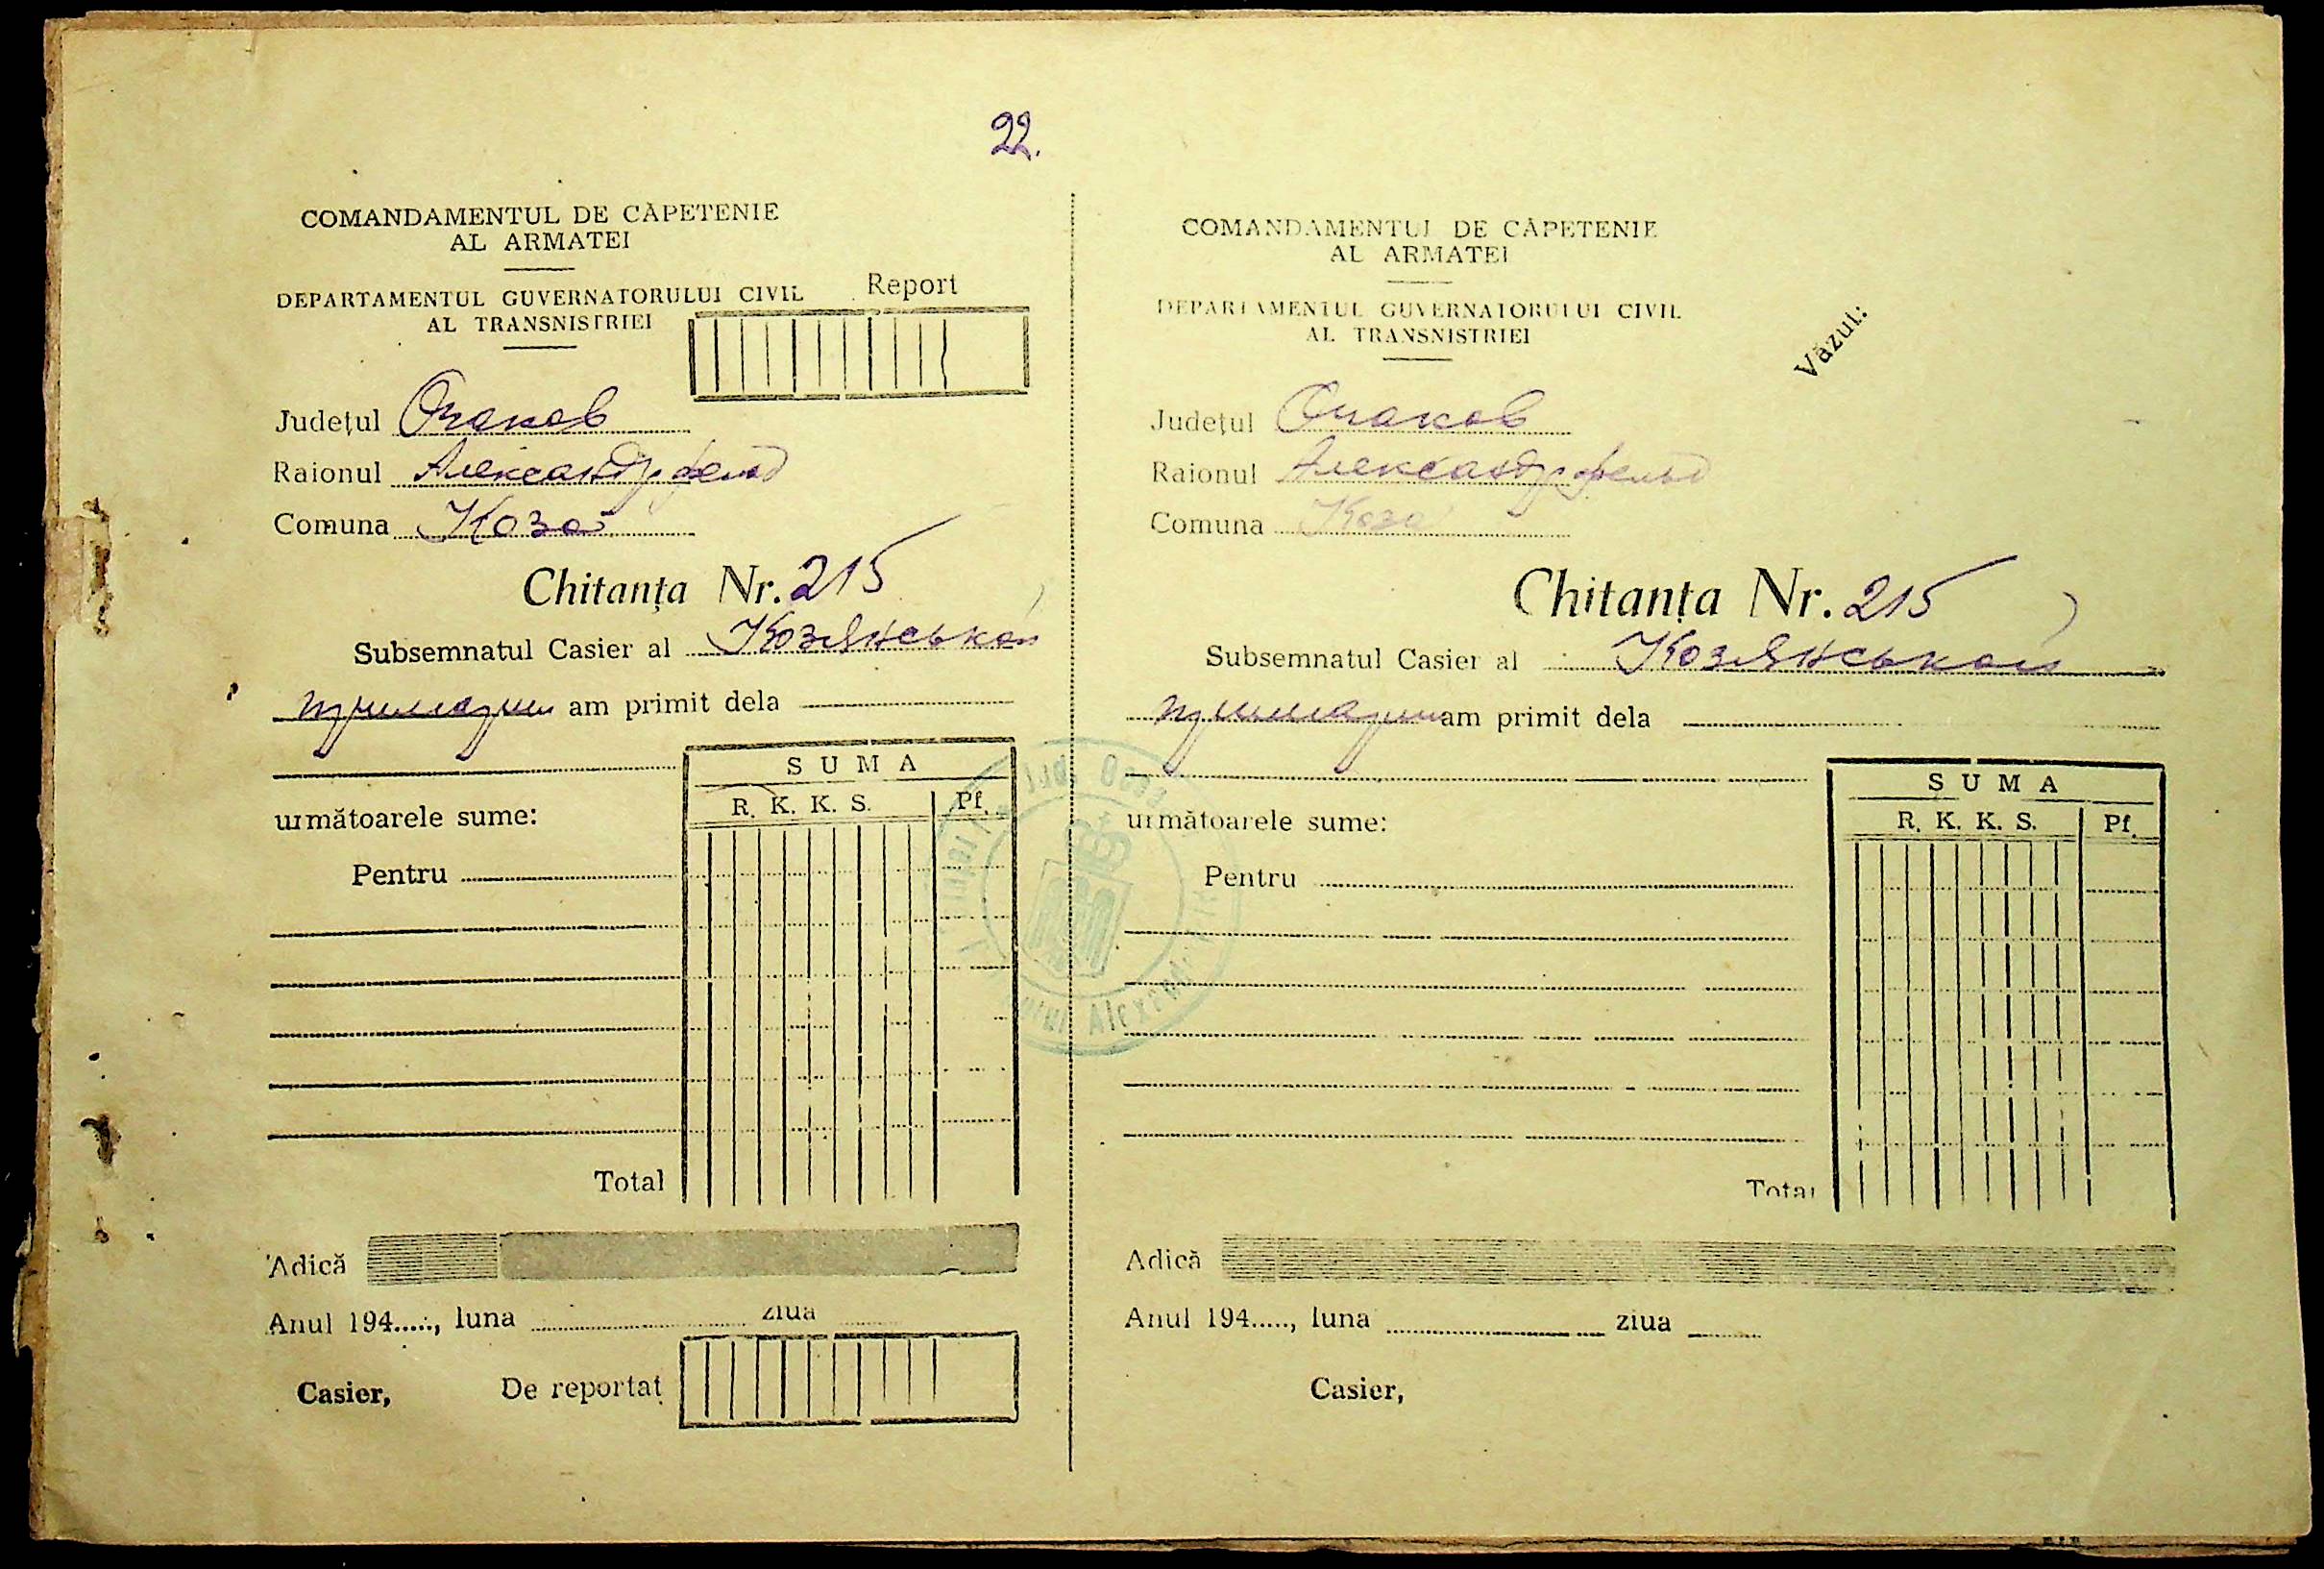 22.
COMANDAMENTUL DE CĂPETENIE
AL ARMATEI
DEPARTAMENTUL GUVERNATORULUI CIVIL
AL TRANSNISTRIEI
Report
Județul Очаков
Raionul Александрфельд
Comuna Коза
Chitanța Nr. 215
Subsemnatul Casier al Козянськой
примарии am primit dela
următoarele sume:
SUMA
R. K. K. S. Pf.
Pentru
Total
Adică
Anul 194....., luna ziua
Casier, De reportat
COMANDAMENTUL DE CĂPETENIE
AL ARMATEI
DEPARTAMENTUL GUVERNATORULUI CIVIL
AL TRANSNISTRIEI
Văzut:
Județul Очаков
Raionul Александрфельд
Comuna Коза
Chitanța Nr. 215
Subsemnatul Casier al Козянськой
примарии am primit dela
următoarele sume:
SUMA
R. K. K. S. Pf.
Pentru
Total
Adică
Anul 194....., luna ziua
Casier,